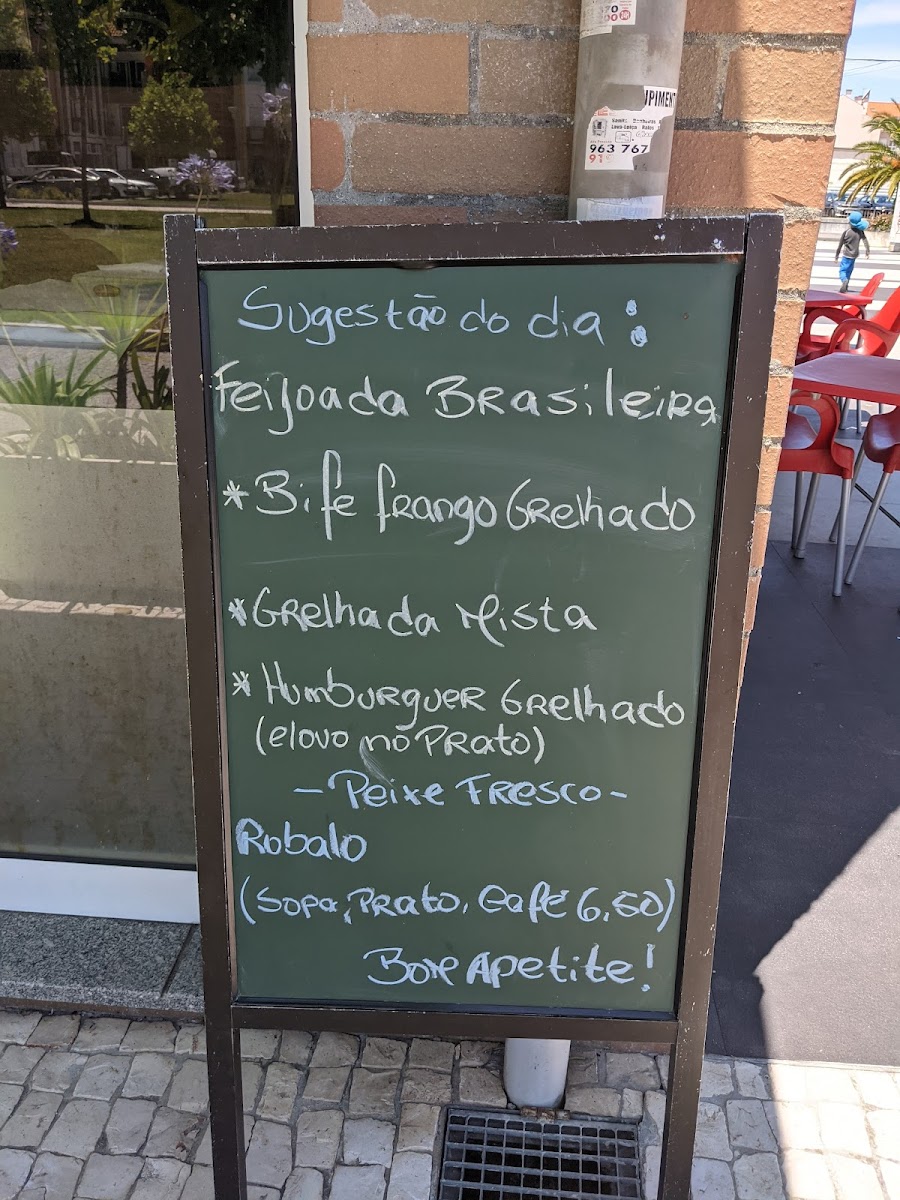 963 767
Sugestão do dia:
Feijoada Brasileira
* Bife frango Grelhado
* Grelhada Mista
* Humburguer Grelhado
(elovo no Prato)
- Peixe Fresco -
Robalo
(Sopa, Prato, Café 6,50)
Bom Apetite!